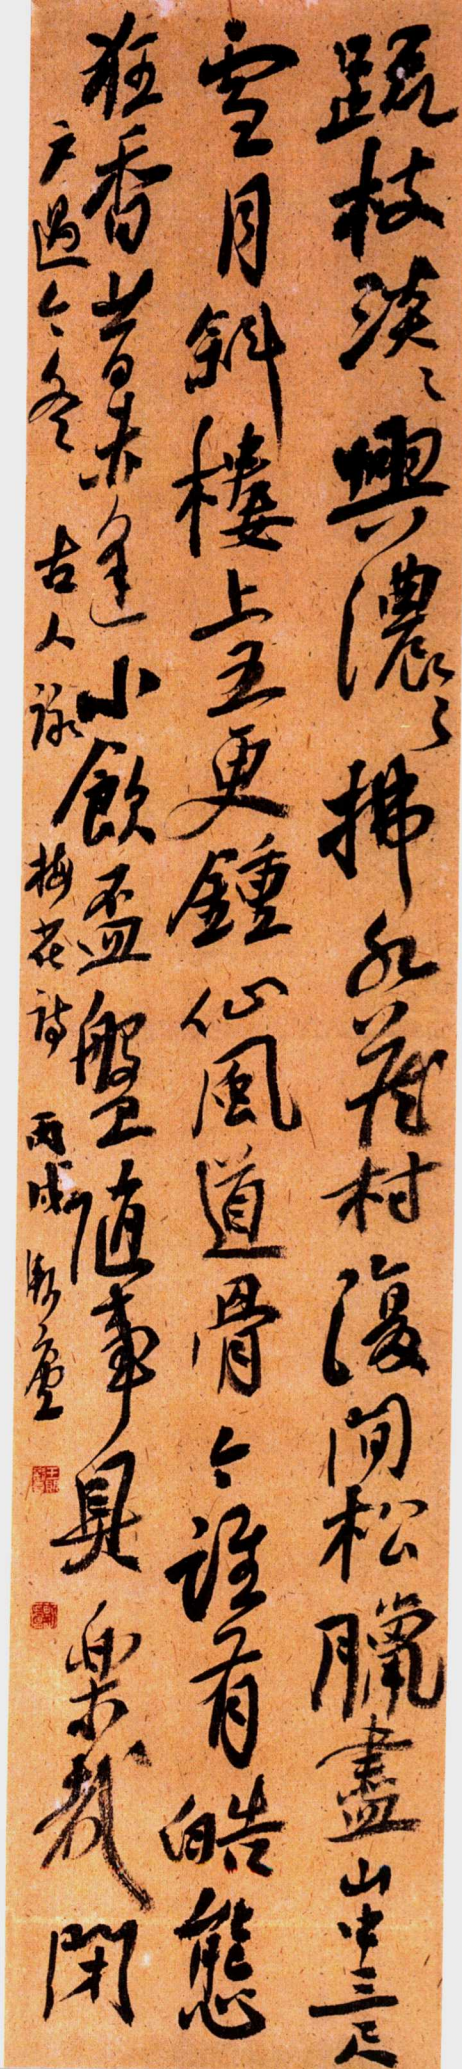 疏枝淡淡興濃濃拂水荒村復間松臘盡山中三尺
雪月斜樓上五更鍾仙風道骨今誰有皓態
狂香昔未逢小飲盃盤隨事具樂哉閑
户過今冬 古人詠梅花詩 丙戌